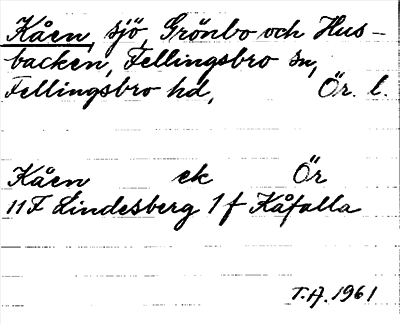 Kåen, sjö, Grönbo och Hus-
backen, Fellingsbro sn,
Fellingsbro hd, Ör. l.
Kåen ek Ör
11F Lindesberg 1f Kåfalla
T.A. 1961